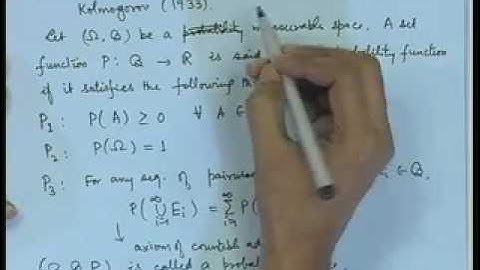 Kolmogorov (1933).
Let (Ω, Q) be a probability measurable space. A set
function P: Q → R is said probability function
if it satisfies the following
P₁: P(A) ≥ 0 ∀ A ∈
P₂: P(Ω) = 1
P₃: For any seq. of pairwise ∈ Q,
P(⋃_{i=1}^∞ E_i) = Σ_{i=1}^∞ P(
↓ axiom of countable
(Ω, Q, P) is called a